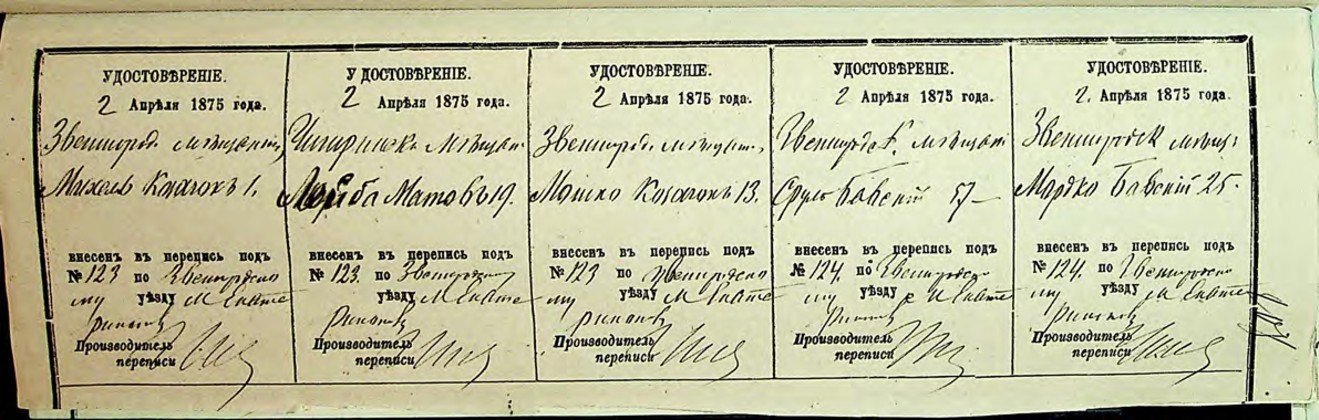 УДОСТОВѢРЕНІЕ.
2 Апрѣля 1875 года.
Звенигород. мѣщанин
Михель Козачокъ 1.
внесенъ въ перепись подъ
№ 123 по Звенигородско
му уѣзду М Екате
ринополь
Производитель
переписи
УДОСТОВѢРЕНІЕ.
2 Апрѣля 1875 года.
Чигиринскъ мѣщан
Лейба Матовъ 19.
внесенъ въ перепись подъ
№ 123. по Звенигородскому
уѣзду М Екате
ринополь
Производитель
переписи
УДОСТОВѢРЕНІЕ.
2 Апрѣля 1875 года.
Звенигород. мѣщан.
Мошко Козачокъ 13.
внесенъ въ перепись подъ
№ 123 по Звенигородско
му уѣзду М Екате
ринополь
Производитель
переписи
УДОСТОВѢРЕНІЕ.
2 Апрѣля 1875 года.
Звенигородск. мѣщан
Сруль Бавскій 57
внесенъ въ перепись подъ
№ 124. по Звенигородско
му уѣзду М Екате
ринополь
Производитель
переписи
УДОСТОВѢРЕНІЕ.
2. Апрѣля 1875 года.
Звенигородск мѣщ.
Мордко Бавскій 25.
внесенъ въ перепись подъ
№ 124. по Звенигородско
му уѣзду М Екате
ринополь
Производитель
переписи